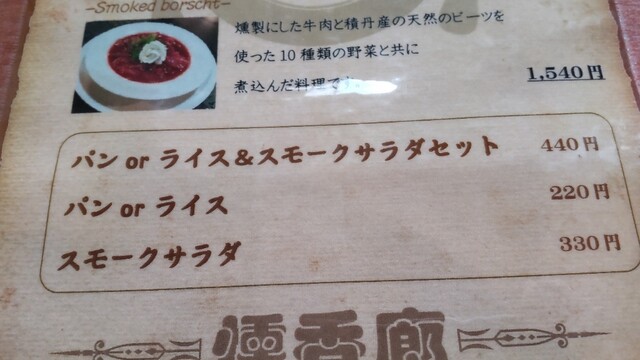 -Smoked borscht-
燻製にした牛肉と積丹産の天然のビーツを
使った10種類の野菜と共に
煮込んだ料理です
1,540円
パン or ライス&スモークサラダセット 440円
パン or ライス 220円
スモークサラダ 330円
燻香廊